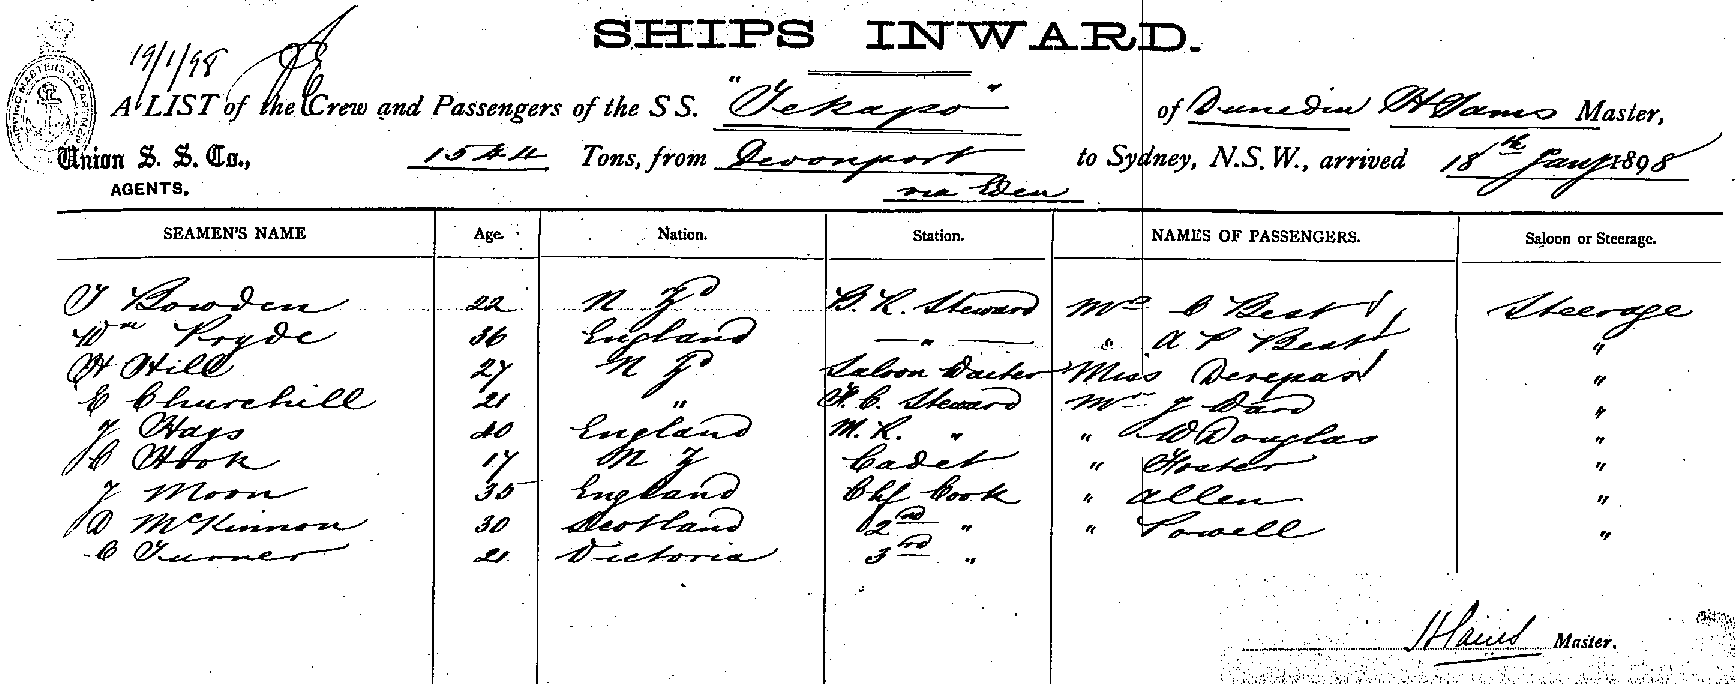 SHIPS INWARD.
19/1/98
A LIST of the Crew and Passengers of the S S. "Tekapo" of Dunedin Master,
Union S. S. Co., 1544 Tons, from Devonport to Sydney, N.S.W., arrived 18th Jany 1898
AGENTS. via Eden
SEAMEN'S NAME Age. Nation. Station. NAMES OF PASSENGERS. Saloon or Steerage.
T Bowden 22 N Zd B. R. Steward Mrs C Best Steerage
Wm Pryde 36 England — " — " A P Best "
H Hill 27 N Zd Saloon Waiter Miss Derepas "
E Churchill 21 " F. C. Steward Mr J Ward "
J Hays 40 England M. R. " " W Douglas "
C Hook 17 N Z Cadet " Foster "
J Moon 35 England Chf Cook " Allen "
D McKinnon 30 Scotland 2nd " " Powell "
C Turner 21 Victoria 3rd "
Master.